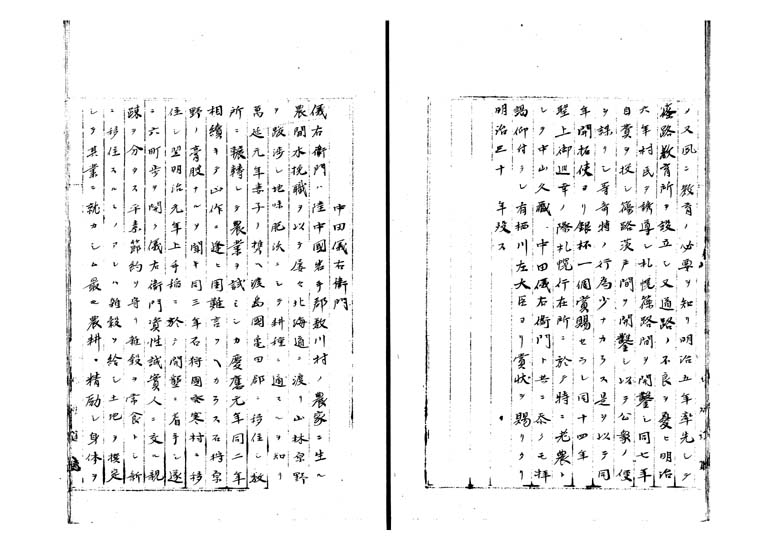 ノ又夙ニ教育ノ必要ヲ知リ明治五年率先シテ
篠路教育所ヲ設立シ又道路ノ不良ヲ憂ヒ明治
六年村民ヲ誘導シ札幌篠路間ヲ開鑿シ同七年
自費ヲ投シ篠路茨戸間ヲ開鑿シ以テ公衆ノ便
ヲ謀リシ等奇特ノ行為少ナカラス是ヲ以テ同
年開拓使ヨリ銀杯一個賞賜セラレ同十四年
聖上御巡幸ノ際札幌行在所ニ於テ特ニ老農ト
シテ中山久蔵中田儀右衛門ト共ニ忝クモ拝
謁仰付ラレ有栖川左大臣ヨリ賞状ヲ賜リタリ
明治三十年歿ス
中田儀右衛門
儀右衛門ハ陸中國岩手郡数川村ノ農家ニ生レ
農間水挽職ヲ以テ屡々北海道ニ渡リ山林原野
ヲ跋渉シ地味肥沃ニシテ耕種ニ適スルヲ知リ
萬延元年妻子ヲ携ヘ渡島國亀田郡ニ移住シ数
所ニ輾轉シテ農業ヲ試ミシカ慶應元年同二年
相續キ凶作ニ逢ヒ困難言フヘカラス石狩原
野ノ膏腴ナルヲ聞キ同三年石狩國發寒村ニ移
住シ翌明治元年上手稲ニ於テ開墾ニ着手シ遂
ニ六町歩ヲ開ク儀右衛門資性誠實人ニ交ル親
疎ヲ分タス平素節約ヲ守リ雑穀ヲ常食トシ新
ニ移住スルモノアレハ雑穀ヲ給シ土地ヲ撰定
シテ其業ニ就カシム最モ農耕ニ精励シ身体ヲ